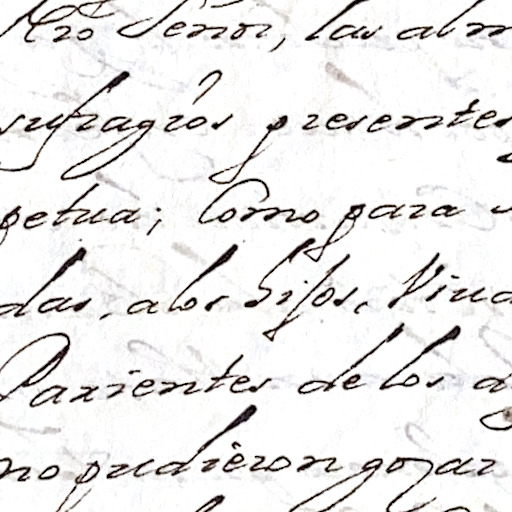 Ntro Señor, las alm
sufragios presentes
petua; Como para
das, alos hijos, Viud
Parientes delos
no pudieron gozar